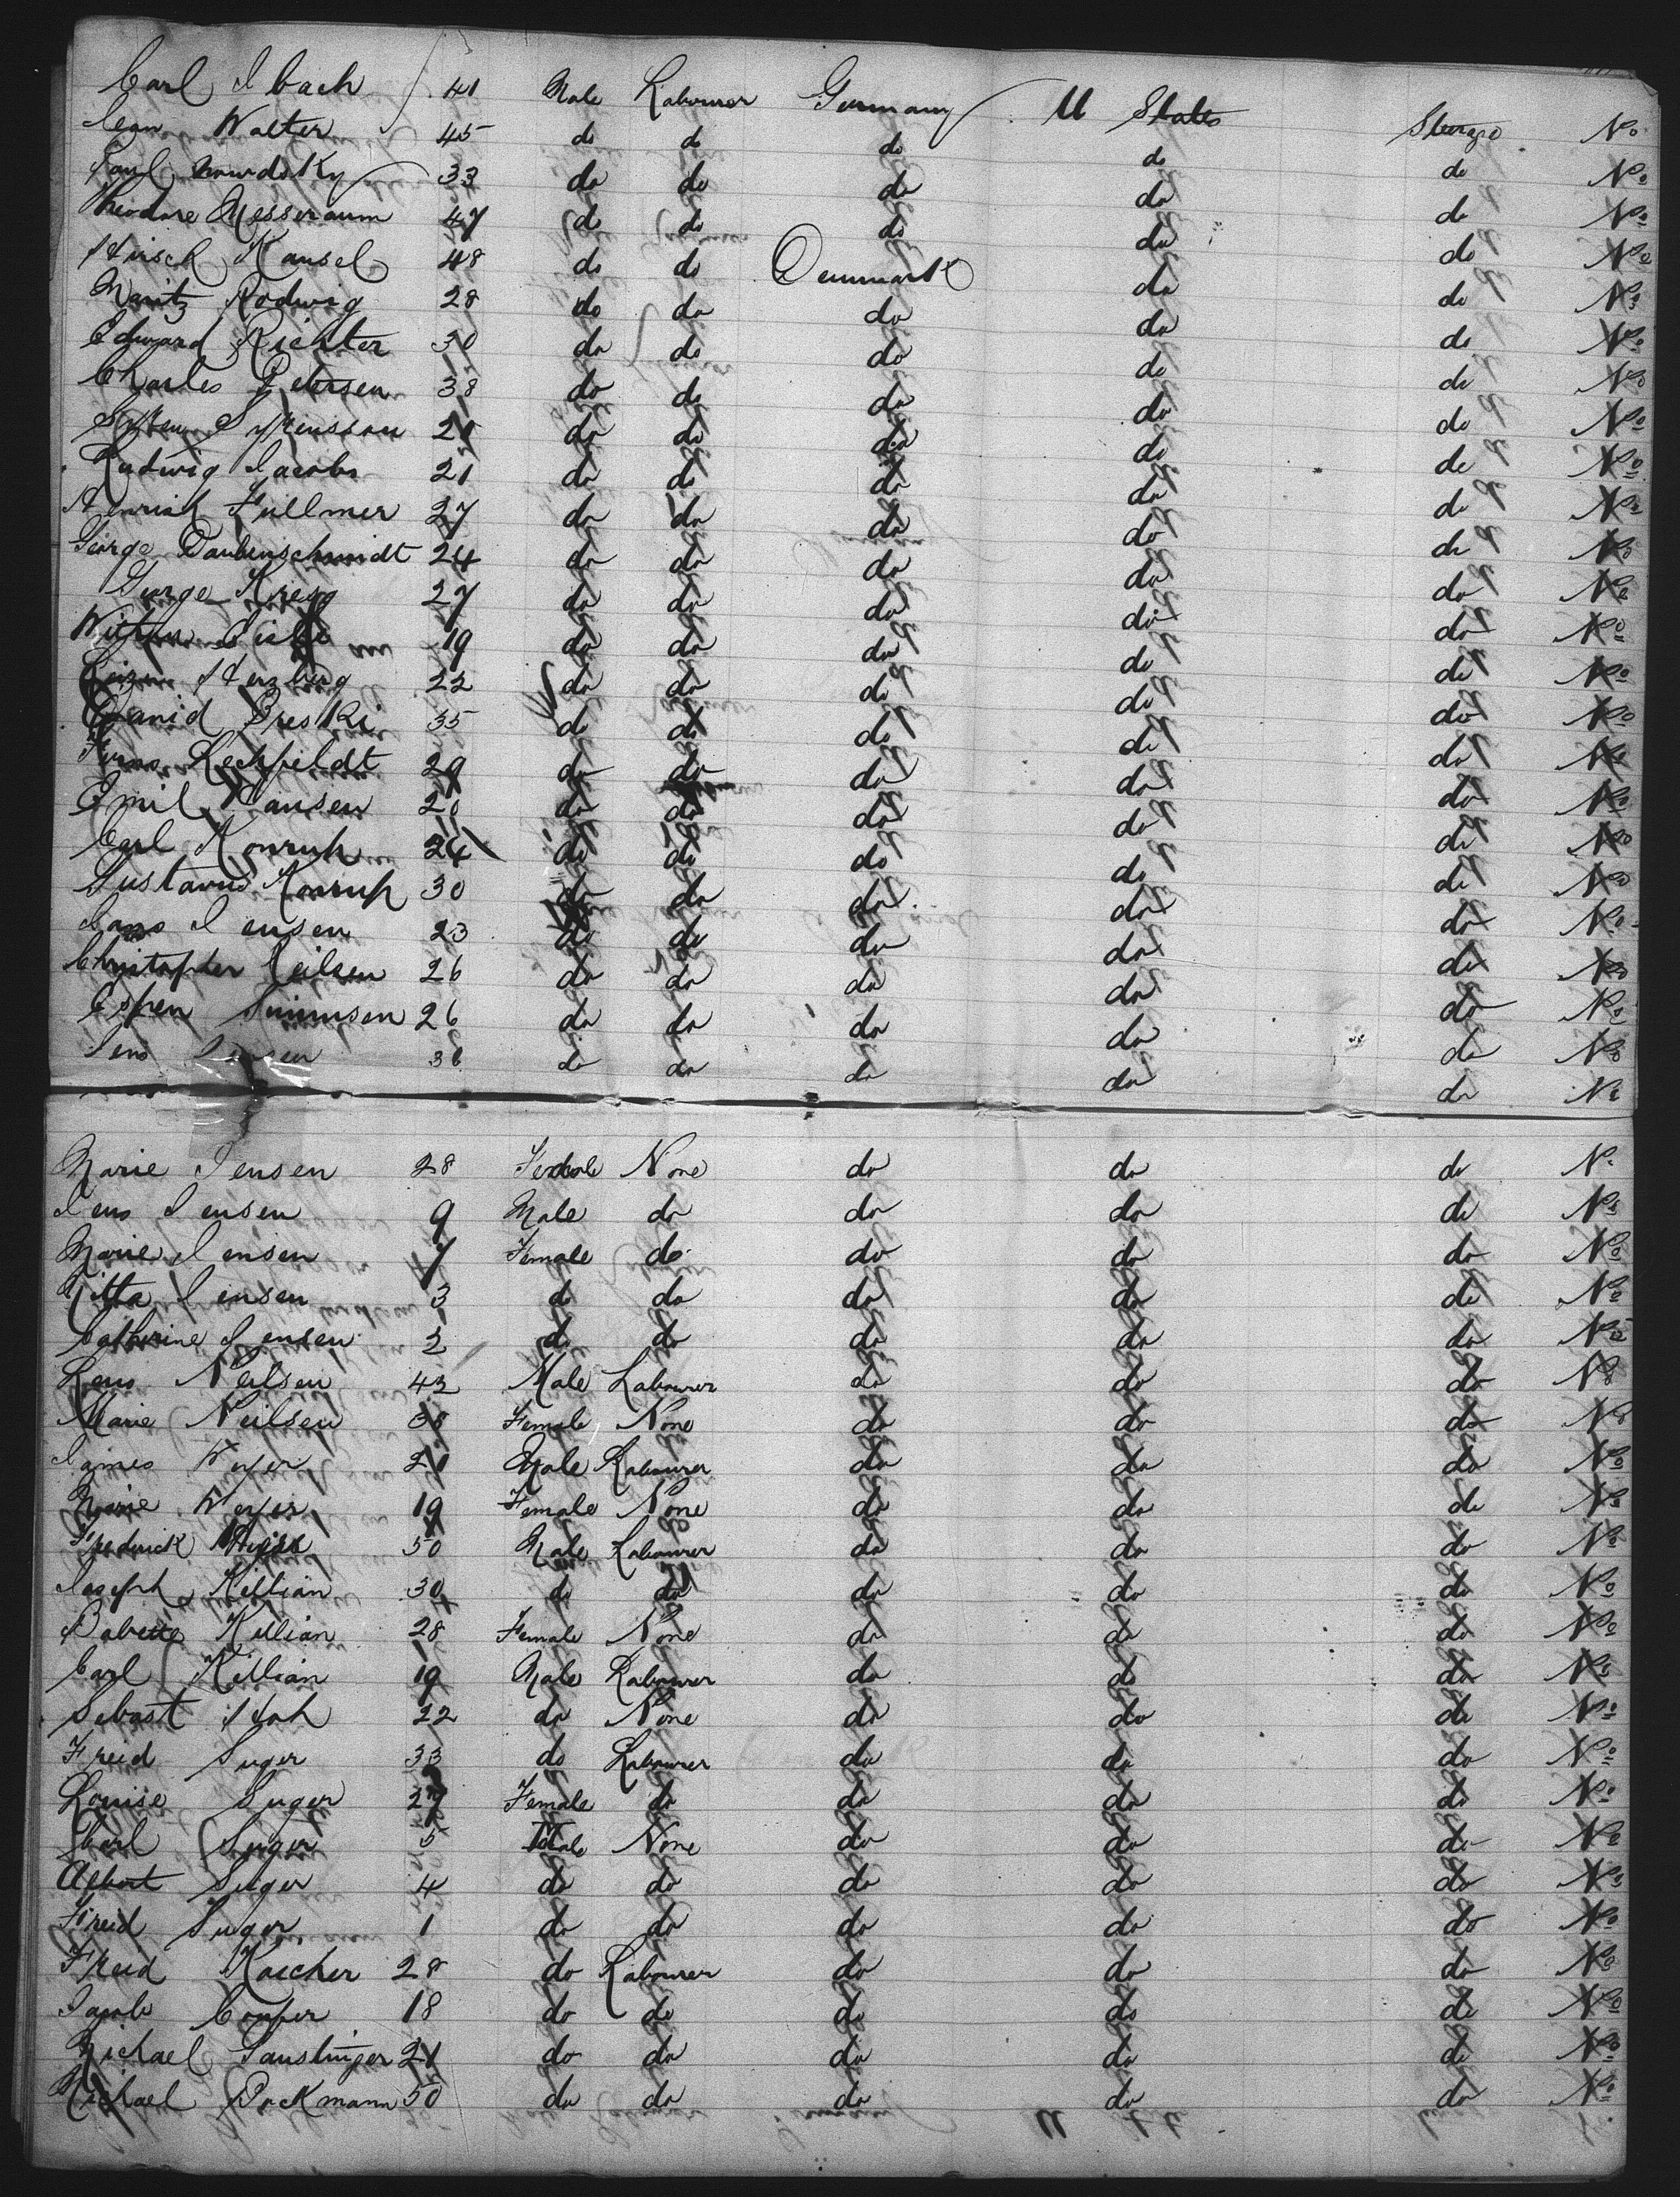 Carl Ibach 41 Male Labourer Germany U States Sterage No
Jean Walter 45 do do do do do No
Paul 33 do do do do do No
Theodore Messeraum 47 do do do do do No
Hirsch Kansel 48 do do Denmark do do No
Moritz Rodwig 28 do do do do do No
Edward Richter 30 do do do do do No
Charles Petersen 38 do do do do do No
do do do do do No
Ludwig Jacobs 21 do do do do do No
Henrich Fullmer 27 do do do do do No
George Daubenschmidt 24 do do do do do No
George Kregg 27 do do do do do No
19 do do do do do No
Herzberg 22 do do do do do No
David Preski 35 do do do do do No
Lechfeildt 29 do do do do do No
Emil Hansen 20 do do do do do No
Carl Konruh 24 do do do do do No
Gustavus Konruh 30 do do do do do No
Jensen 23 do do do do do No
Christopher Neilsen 26 do do do do do No
Espen Simmsen 26 do do do do do No
Jens Jensen 36 do do do do do No
Marie Jensen 28 Female None do do do No
Jens Jensen 9 Male do do do do No
Marie Jensen 7 Female do do do do No
Gitta Jensen 3 do do do do do No
Catherine Jensen 2 do do do do do No
Lens Neilsen 43 Male Labourer do do do No
Marie Neilsen 38 Female None do do do No
James Weyer 21 Male Labourer do do do No
Marie Weyer 19 Female None do do do No
Frederick 50 Male Labourer do do do No
Joseph Killian 30 do do do do do No
Babette Killian 28 Female None do do do No
Carl Killian 19 Male Labourer do do do No
Sebast Hoh 22 do None do do do No
Freid Suger 33 do Labourer do do do No
Louise Suger 27 Female do do do do No
Carl Suger 5 Male None do do do No
Albert Suger 4 do do do do do No
Freid Suger 1 do do do do do No
Freid Kaicher 28 do Labourer do do do No
Jacob Confer 18 do do do do do No
Michael Sauslinger 21 do do do do do No
Michael Dockmann 50 do do do do do No